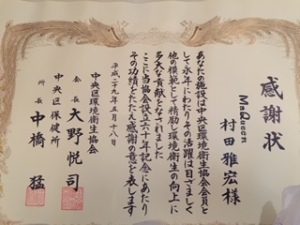 感謝状
MaQueen
村田雅宏様
あなたの施設は中央区環境衛生協会会員と
して永年にわたりその活躍は目ざましく
他の模範として精励し環境衛生の向上に
多大な貢献をなされました
ここに当協会設立六十年記念にあたり
その功績をたたえ感謝の意を表します
平成二十九年五月十八日
中央区環境衛生協会
会長 大野悦司
中央区保健所
所長 中橋猛